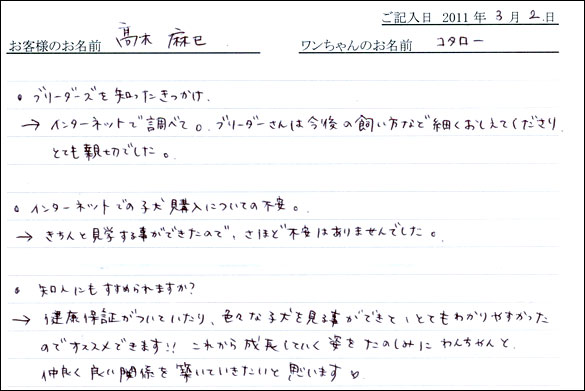 ご記入日 2011年 3月 2日
お客様のお名前 髙木 麻巳 ワンちゃんのお名前 コタロー
・ブリーダーズを知ったきっかけ.
→ インターネットで調べて。ブリーダーさんは今後の飼い方など細くおしえてくださり
とても親切でした。
・インターネットでの子犬購入についての不安。
→ きちんと見学する事ができたので、さほど不安はありませんでした。
・知人にもすすめられますか?
→ 健康保証がついていたり、色々な子犬を見る事ができて、とてもわかりやすかった
のでオススメできます!! これから成長していく姿をたのしみに わんちゃんと
仲良く良い関係を築いていきたいと思います。